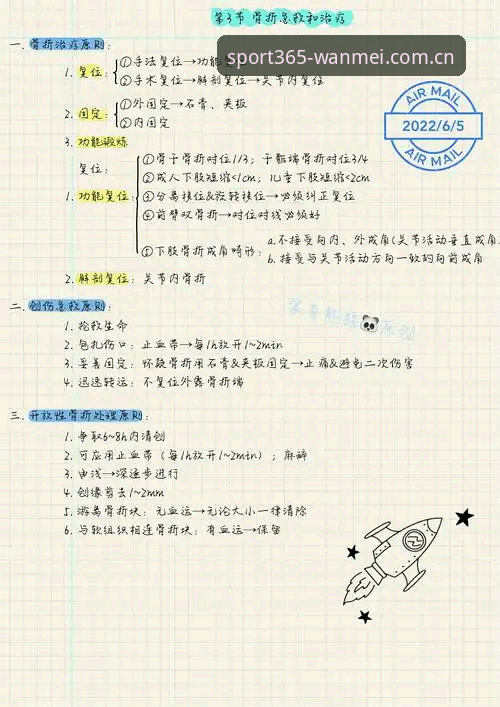 第3节 骨折急救和治疗
一. 骨折治疗原则:
①手法复位→功能
sport365-wanmei.com.cn
1. 复位: ②手术复位→解剖复位→关节内复位
AIR MAIL
2022/6/5
AIR MAIL
2. 固定: ①外固定→石膏、夹板
②内固定
3. 功能锻炼
复位:
1. 功能复位:
①骨干骨折对位1/3; 干骺端骨折对位3/4
②成人下肢短缩<1cm; 儿童下肢短缩<2cm
③分离移位&旋转移位→必须纠正复位
④前臂双骨折→对位对线必须好
⑤下肢骨折成角畸形: a.不接受向内、外成角(关节活动垂直成角
b.接受与关节活动方向一致的向前成角
2. 解剖复位: 关节内骨折
二. 创伤急救原则:
1. 抢救生命
2. 包扎伤口: 止血带→每1h放开1~2min
3. 妥善固定: 怀疑骨折用石膏&夹板固定→止痛&避免二次伤害
4. 迅速转运: 不复位外露骨折端
三. 开放性骨折处理原则:
1. 争取6~8h内清创
2. 可应用止血带 (每1h放开1~2min); 麻醉
3. 由浅→深逐步进行
4. 创缘剪去1~2mm
5. 游离骨折块: 无血运→无论大小一律清除
6. 与软组织相连骨折块: 有血运→保留